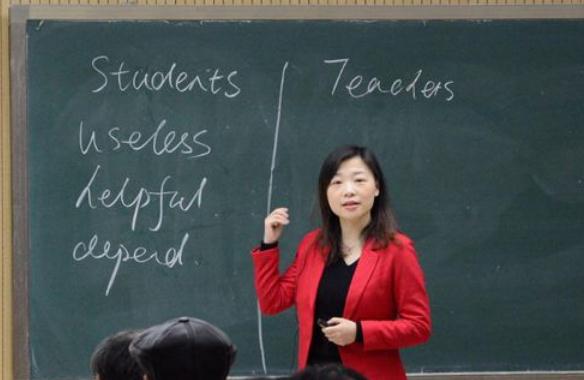 Students
Teachers
useless
helpful
depend.